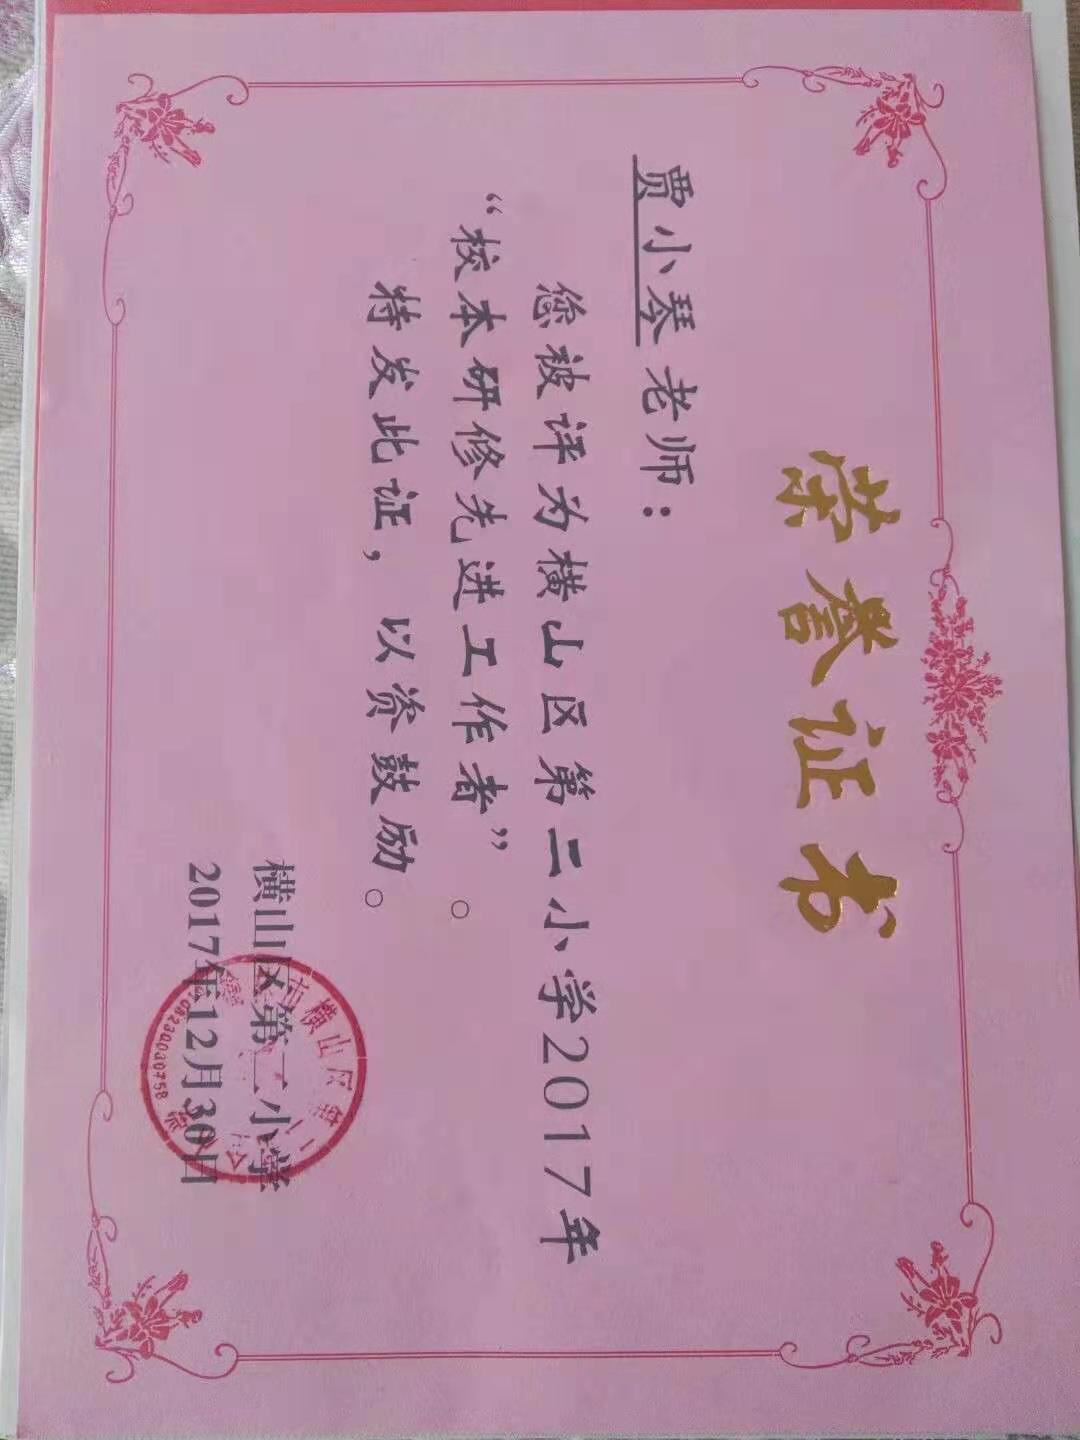 荣誉证书
贾小琴老师：
您被评为横山区第二小学2017年
“校本研修先进工作者”。
特发此证，以资鼓励。
横山区第二小学
2017年12月30日